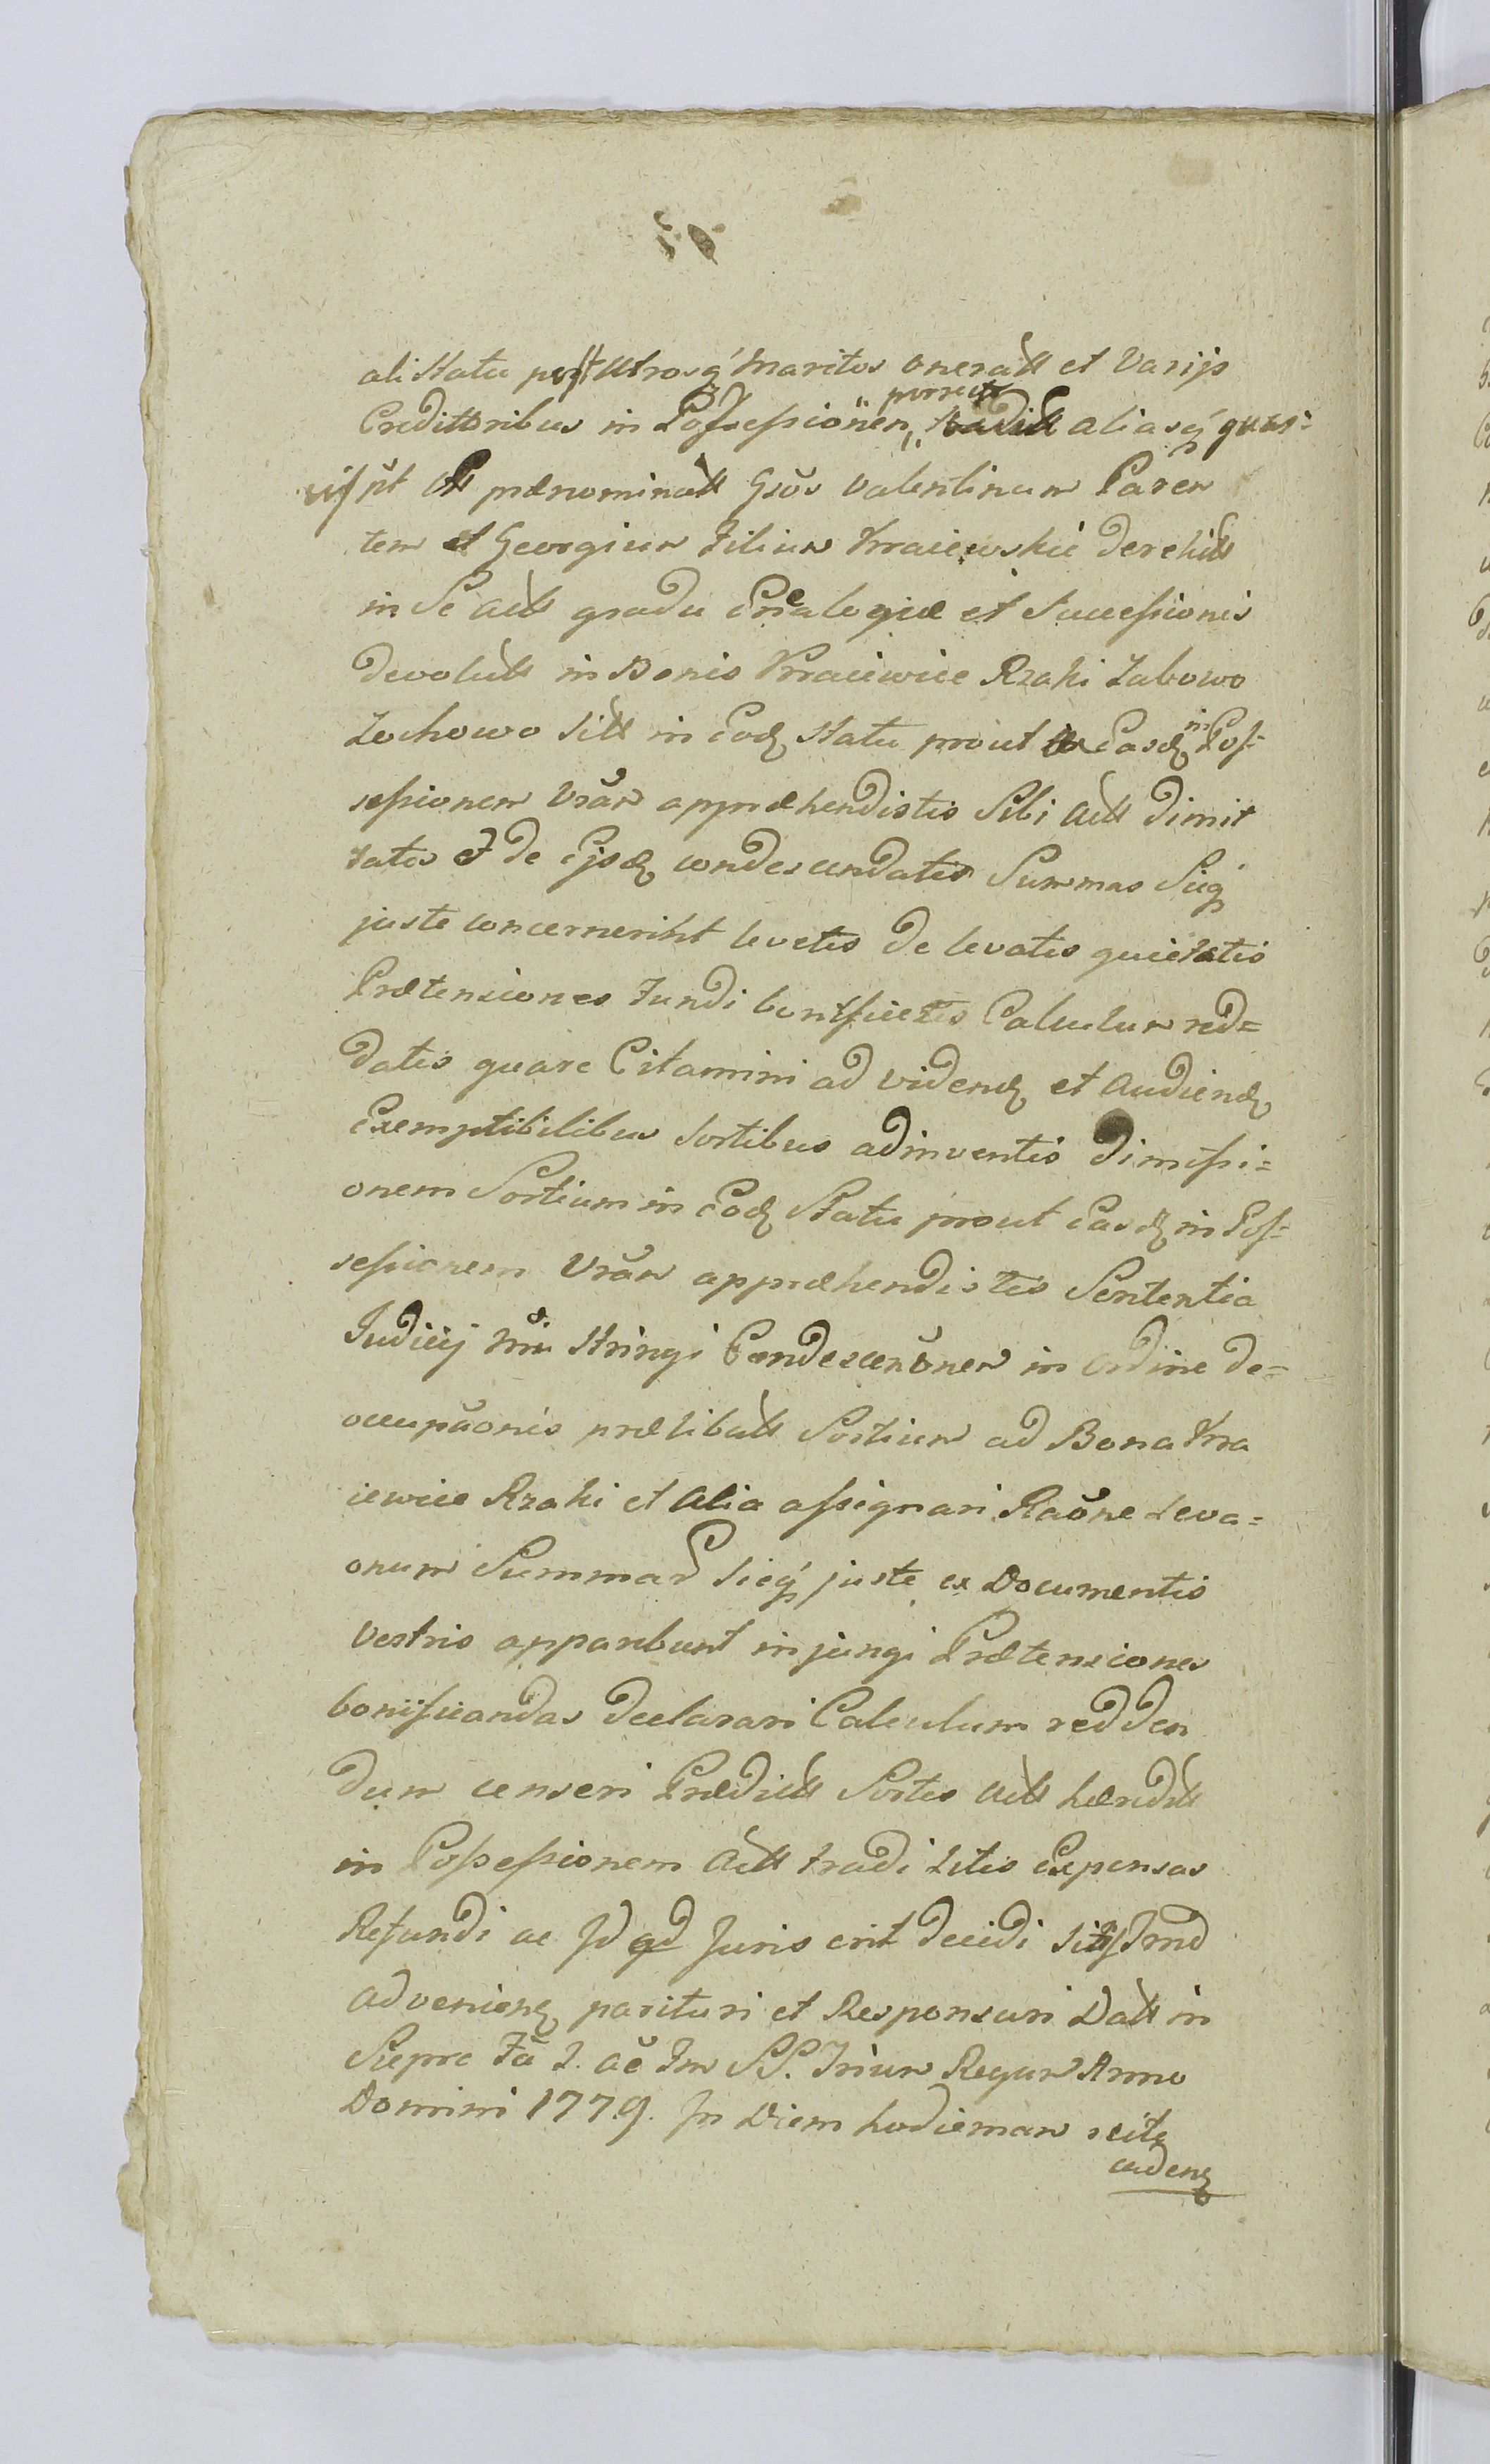 ali statu post utrosq́ Maritos oneratt et Varijs
Credittoribus in Possessionem porrect traditt aliasq́ quas:
vis p̃t per prænominatt Gsõs Valentinum Paren
tem et Georgium Filium Kraiewskie derelictt
in Se Actt gradu Enealogiæ et Successionis
devolutt in Bonis Kraiewice Rzaki Łabowo
Zochowo sitt in Eodq statu prout Easdq in Pos:
sessionem Vrãm appræhendistis Sibi Actt dimit
tatis et de Ijsdq condescendatis Summas Sicq́
juste concernerint levetis de levatis quietatis
Prætensiones Fundi bonificetis Calculum red=
datis quare Citamini ad videndq et Audiendq
Exemptibilibus sortibus adinventis dimissi=
onem Sortium in Eodq Statu prout Easdq in Pos=
sessionem Vrãm appræhendistis Sententia
Judicij Nri stringi Condescensõnem in ordine de=
occupaõnis prælibatt Sortium ad Bona Kra
iewice Rzaki et Alia assignari Raõne Leva=
onum Summar sicq́ juste ex Documentis
Vestris apparebunt injungi Prætensiones
bonificandas declarari Calculum redden
dum censeri Prædictt Sortes Actt hæredtt
in Possessionem Actt tradi Litis Expensas
Refundi ac Id qd Juris erit decidi sitis Trnd
advenienq parituri et Responsuri Datt in
Siepre Fã 2. ãe Fm SS. Trium Regum Anno
Domini 1779. In Diem hodiernam recite
cadenq